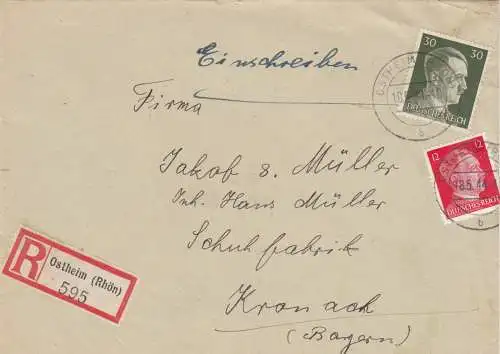 Einschreiben
Firma
Jakob s. Müller
Inh. Hans Müller
Schuhfabrik
Kronach
(Bayern)
R
Ostheim (Rhön)
595
30 30
DEUTSCHES REICH
OSTHEIM
b
12 12
DEUTSCHES REICH
b